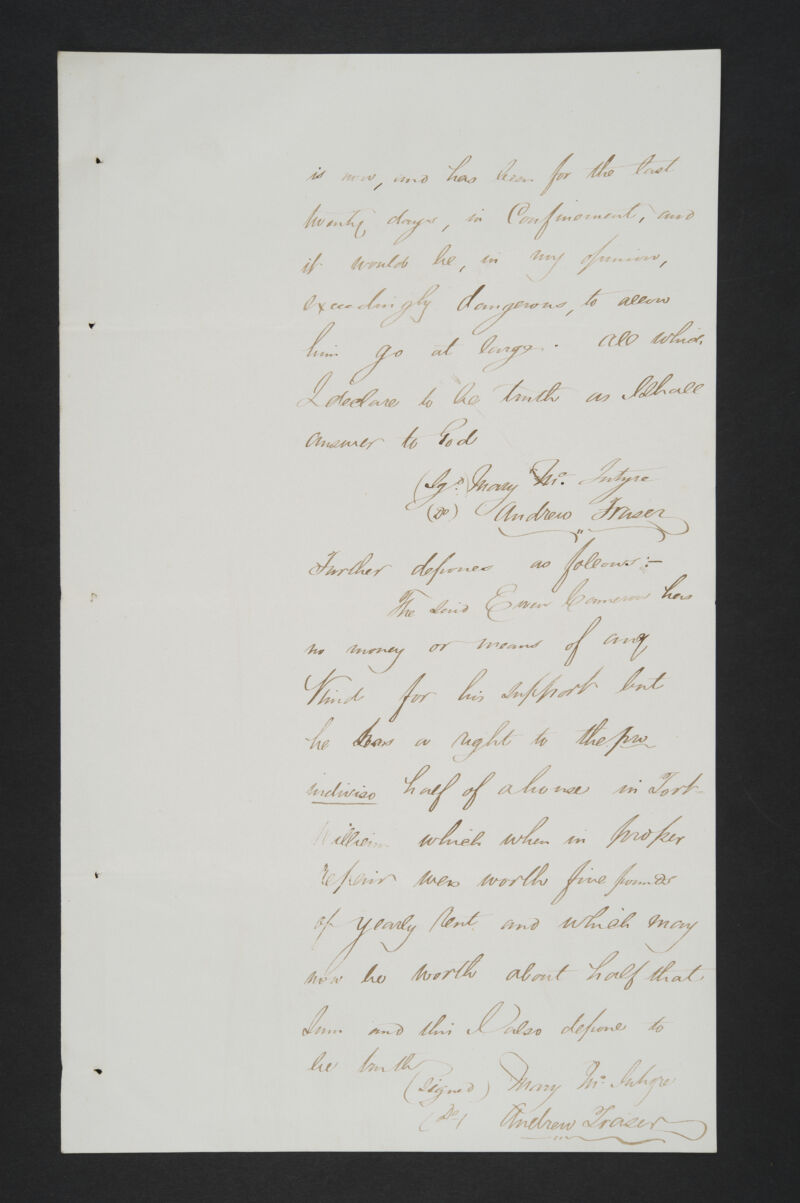 is now, and has been for the last
twenty days, in Confinement, and
it would be, in my opinion,
exceedingly dangerous, to allow
him go at large. All which
I declare to be truth as I shall
answer to God
(Sgd) Mary Mc. Intyre
(Do) Andrew Fraser
Further depones as follows:-
The said Ewen Cameron has
no money or means of any
Kind for his support but
he has a right to the pro
indiviso half of a house in Fort-
William which when in proper
repair was worth five pounds
of yearly rent and which may
now be worth about half that
Sum and this I also depone to
be truth
(Signed) Mary Mc. Intyre
(Do) Andrew Fraser